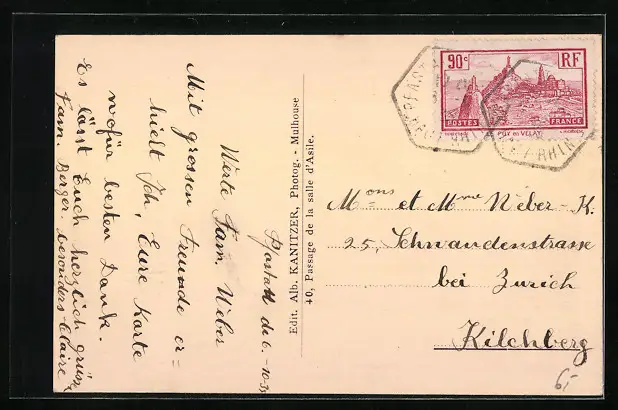 Pfastatt de 6.-10-33
Werte Fam. Weber
Mit grossen Freunde er=
hielt Ich, Eure Karte
wofür besten Dank.
Es lässt Euch herzlich grüsse
Fam. Berger. besonders Claire
Edit. Alb. KANITZER, Photog. - Mulhouse
40, Passage de la salle d'Asile.
90c RF
POSTES FRANCE
PUY EN VELAY
Mons et Mme Weber-K.
25, Schwandenstrasse
bei Zurich
Kilchberg
6,-